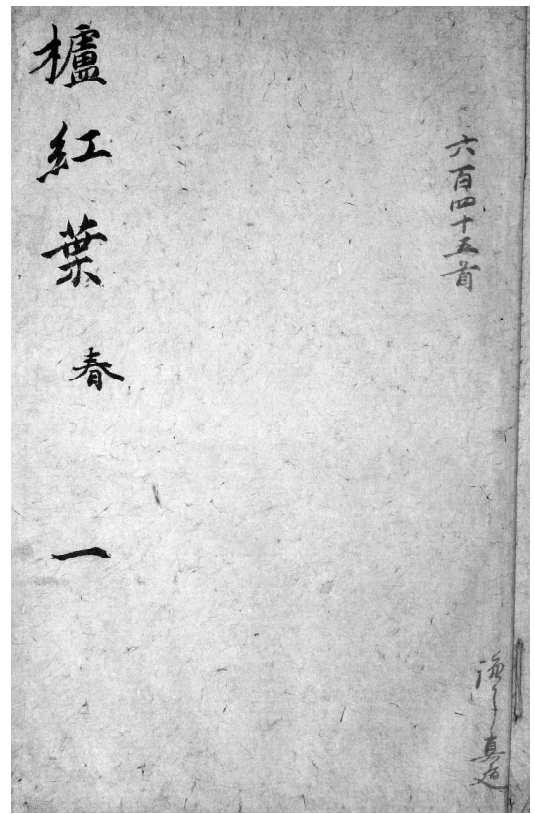 六百四十五首
真
櫨紅葉 春 一